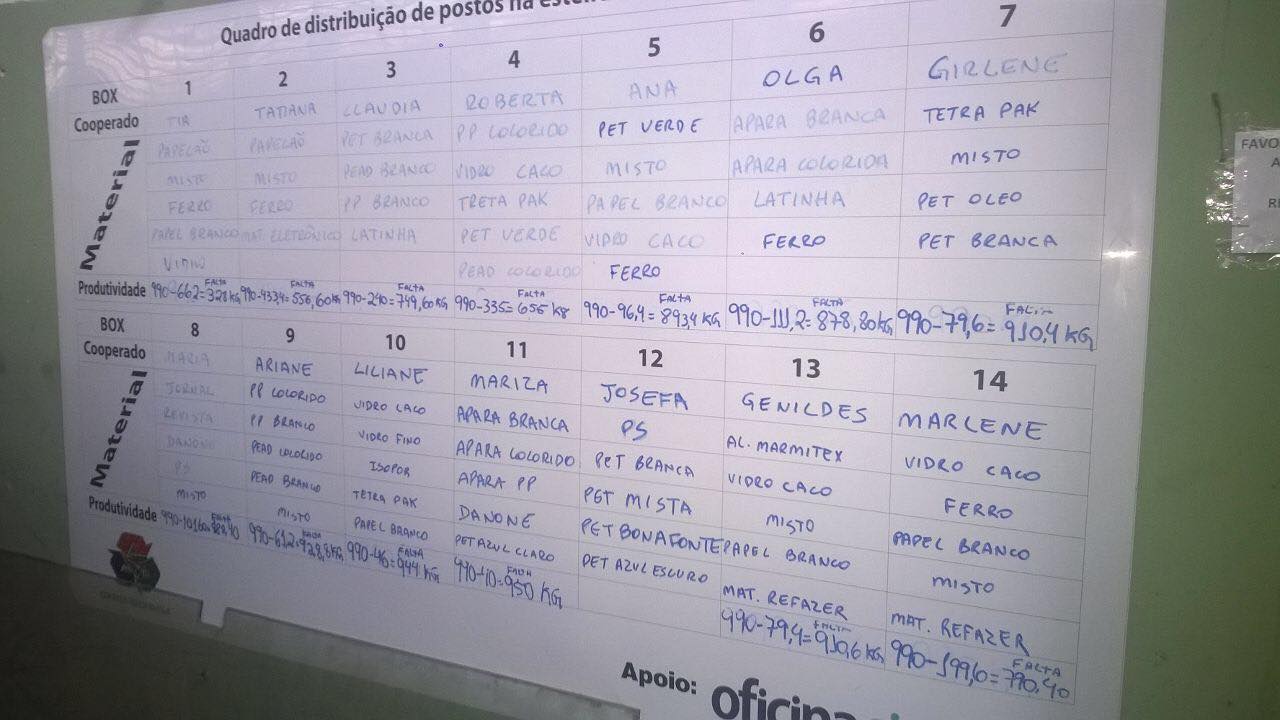 Quadro de distribuição de postos na
BOX 1 2 3 4 5 6 7
Cooperado TATIANA CLAUDIA ROBERTA ANA OLGA GIRLENE
Material
PAPELÃO PAPELÃO PET BRANCA PP COLORIDO PET VERDE APARA BRANCA TETRA PAK
MISTO MISTO PEAD BRANCO VIDRO CACO MISTO APARA COLORIDA MISTO
FERRO FERRO PP BRANCO TRETA PAK PAPEL BRANCO LATINHA PET OLEO
PAPEL BRANCO MAT ELETRÔNICO LATINHA PET VERDE VIDRO CACO FERRO PET BRANCA
PEAD COLORIDO FERRO
FALTA FALTA FALTA FALTA FALTA FALTA FALTA
Produtividade 990-662=328 kg 990-433,4=556,60kg 990-240=749,60KG 990-335=655 KG 990-96,4=893,4 KG 990-111,2=878,80KG 990-79,6=910,4 KG
BOX 8 9 10 11 12 13 14
Cooperado MARIA ARIANE LILIANE MARIZA JOSEFA GENILDES MARLENE
Material
JORNAL PP COLORIDO VIDRO CACO APARA BRANCA PS AL. MARMITEX VIDRO CACO
REVISTA PP BRANCO VIDRO FINO APARA COLORIDO PET BRANCA VIDRO CACO FERRO
DANONE PEAD COLORIDO ISOPOR APARA PP PET MISTA MISTO PAPEL BRANCO
PS PEAD BRANCO TETRA PAK DANONE PET BONAFONTE PAPEL BRANCO MISTO
MISTO MISTO PAPEL BRANCO PET AZUL CLARO PET AZUL ESCURO MAT. REFAZER MAT. REFAZER
FALTA FALTA FALTA FALTA FALTA FALTA
Produtividade 990-61,2=928,8KG 990-46=944 KG 990-40=950 KG 990-79,4=910,6 KG 990-199,6=790,40
Apoio:
FAVO